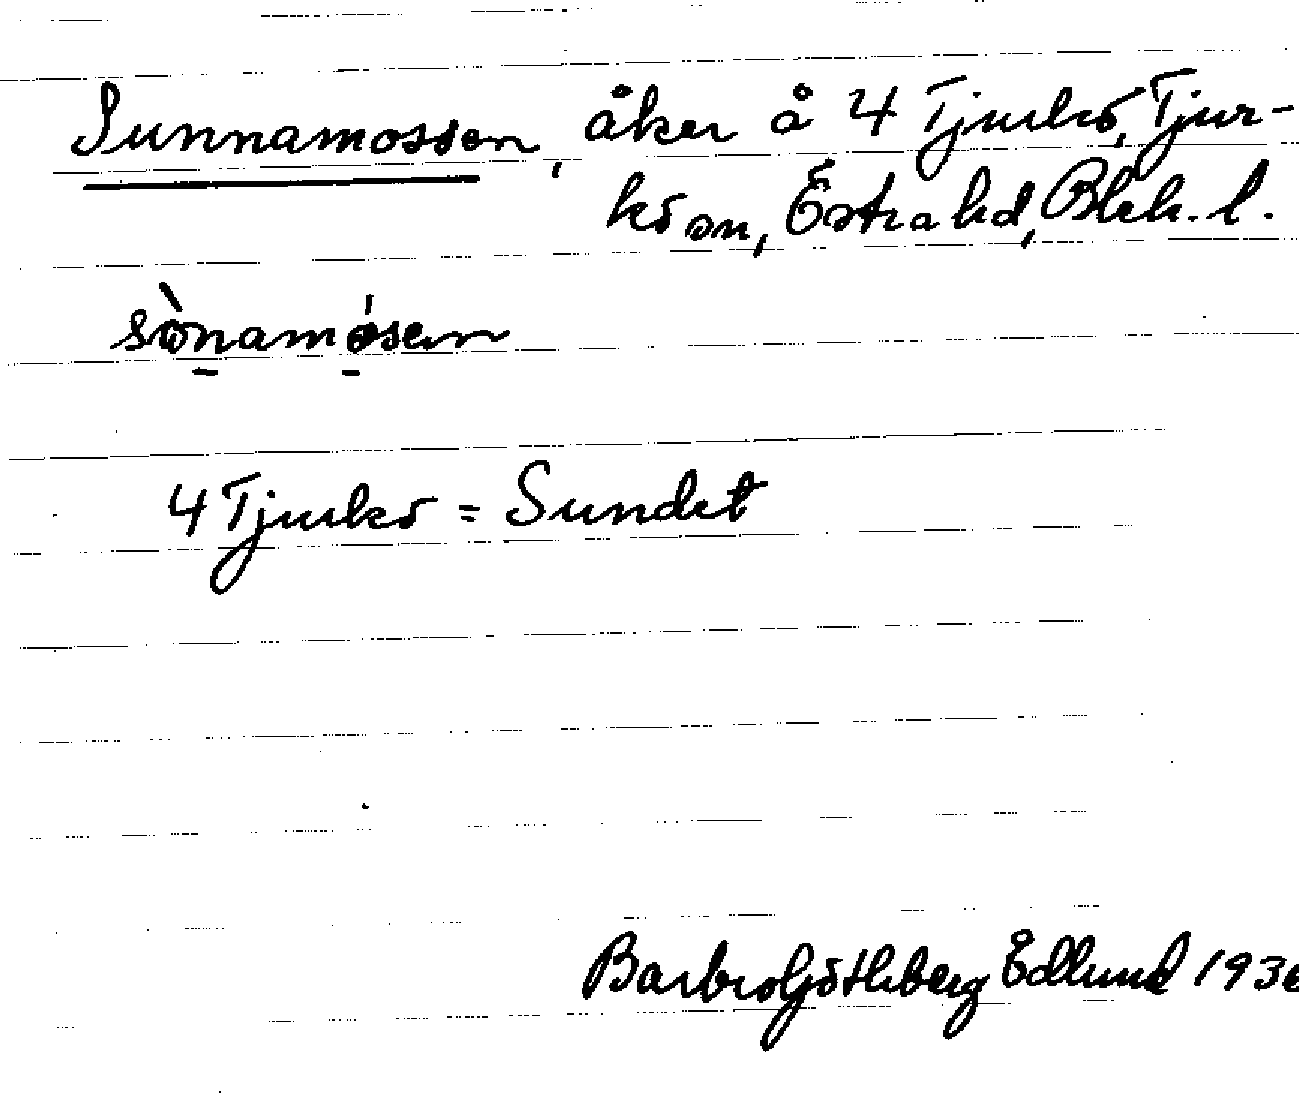 Sunnamossen, åker å 4 Tjurkö, Tjur-
kö sn, Östra hd, Blek. l.
sònamósen
4 Tjurkö = Sundet
Barbro Götlsberg Edlund 1936